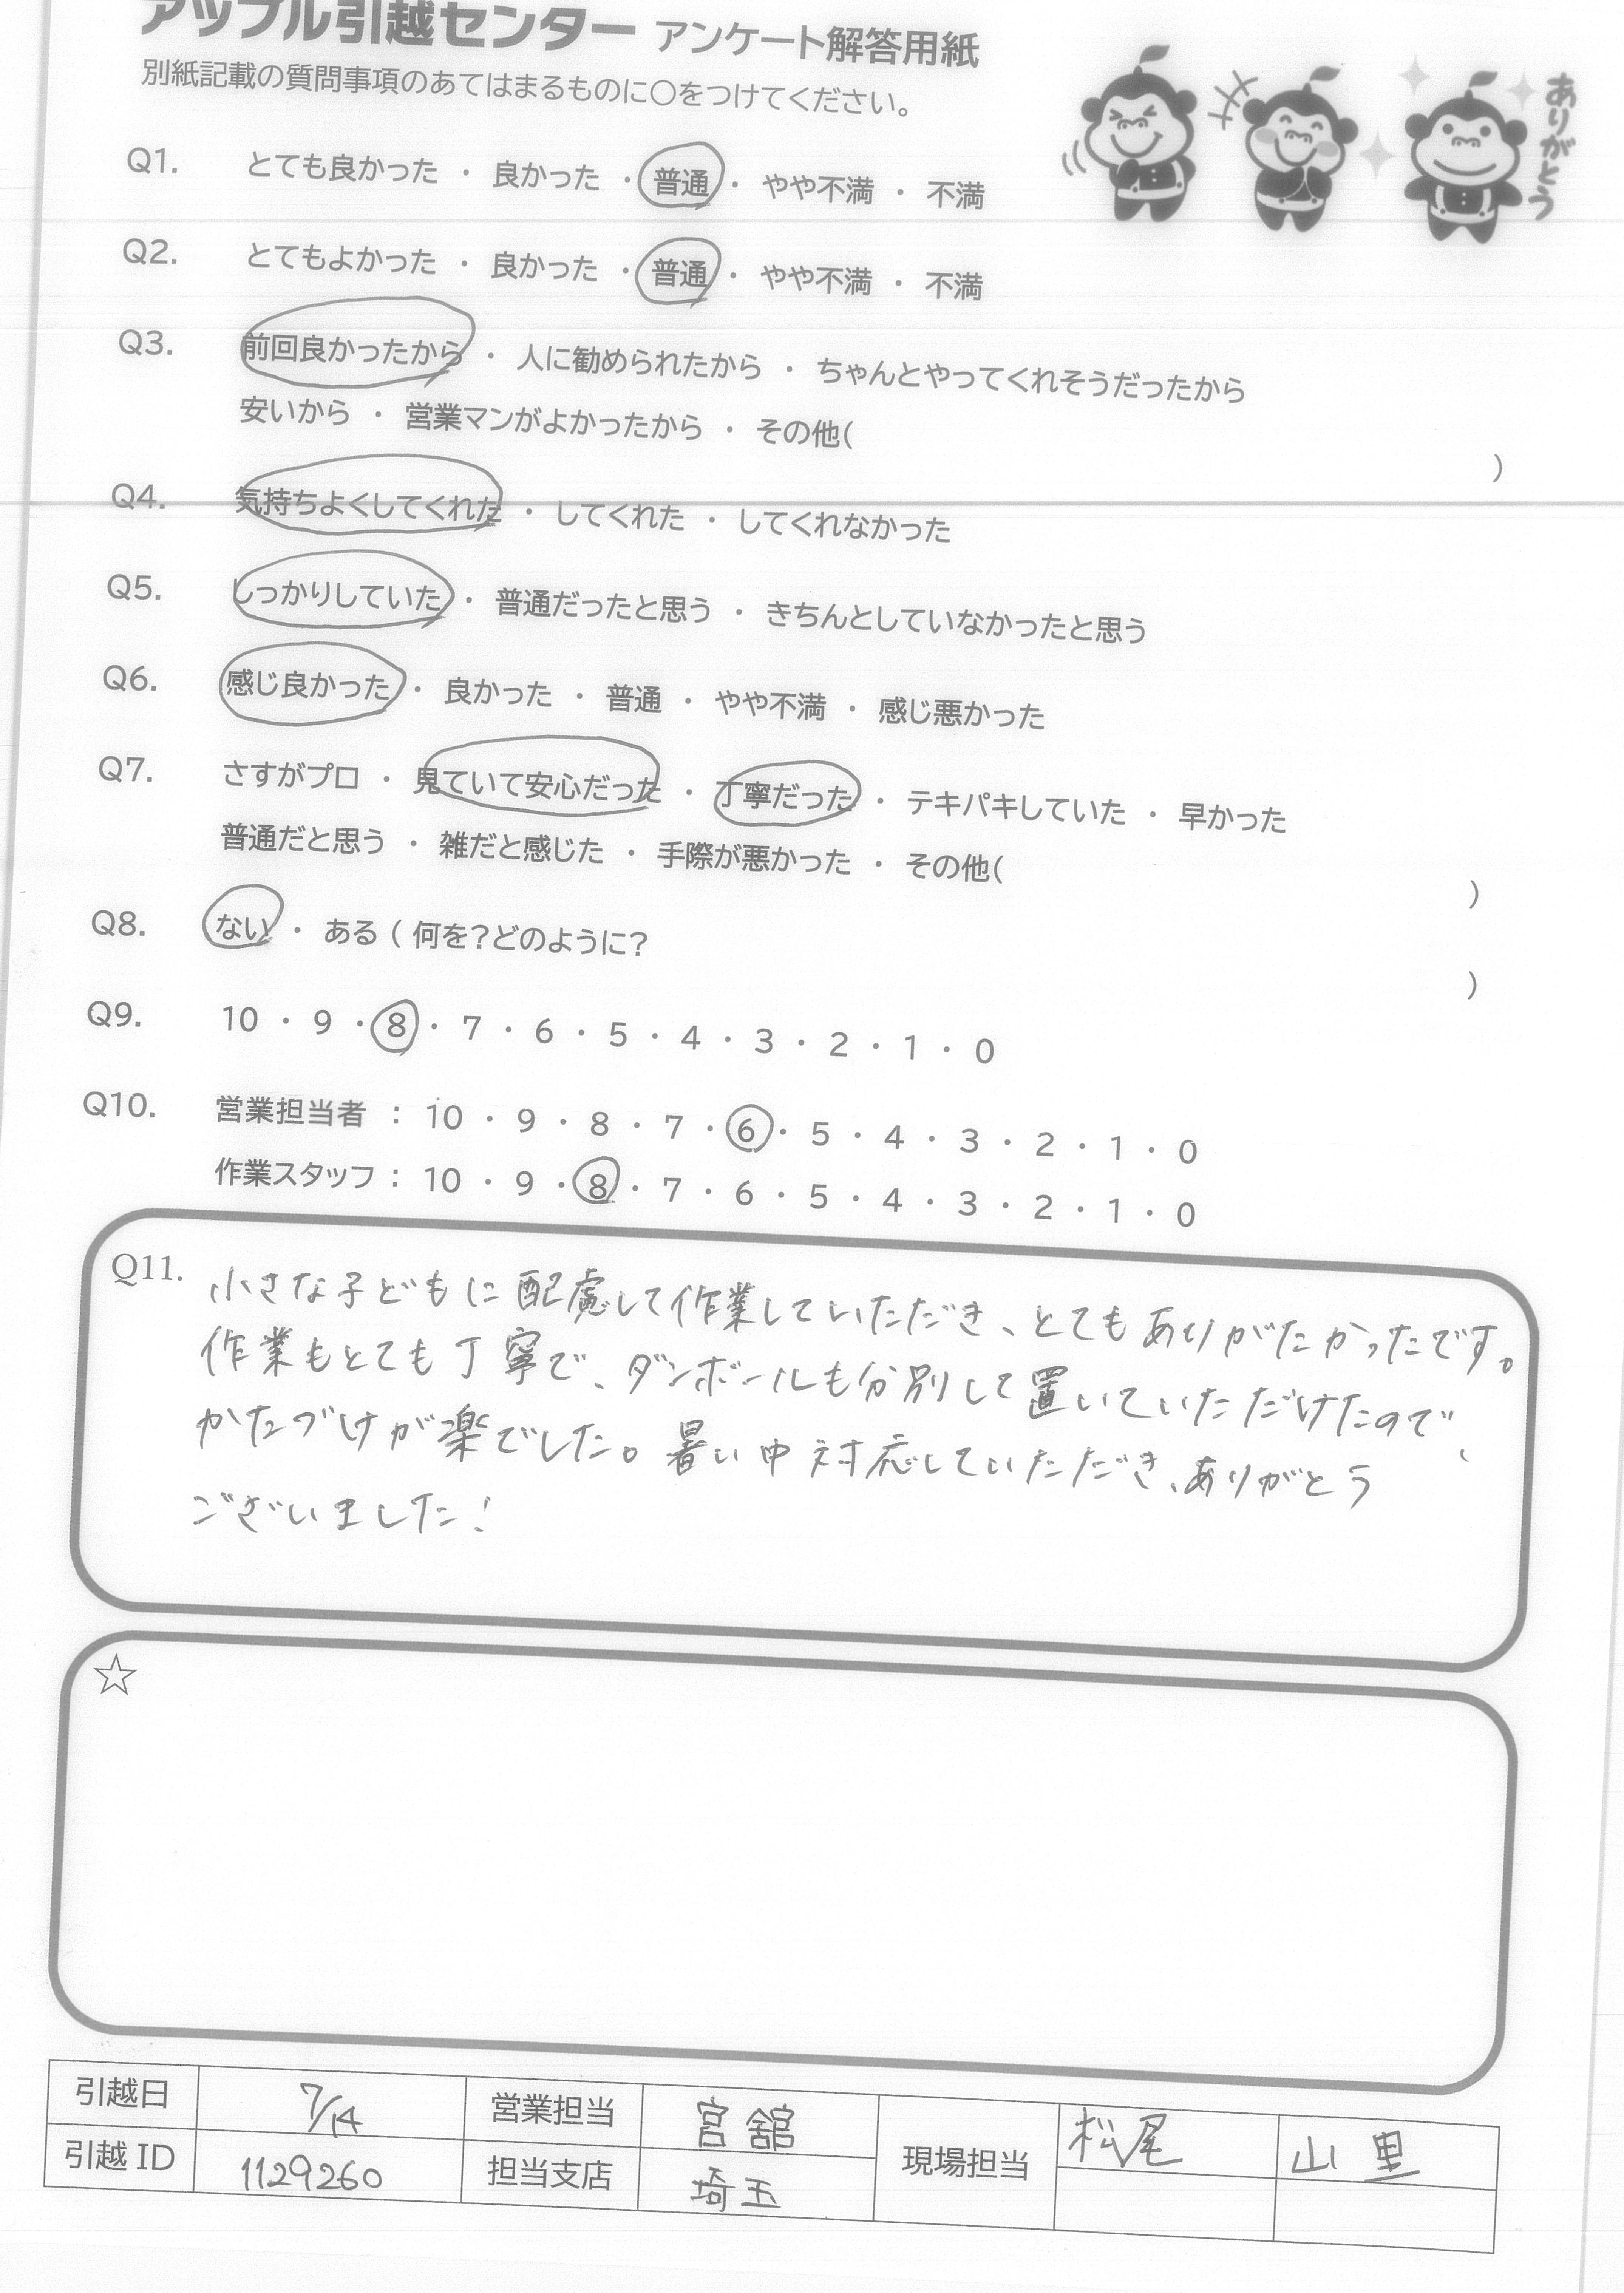 アップル引越センター アンケート解答用紙
別紙記載の質問事項のあてはまるものに〇をつけてください。
ありがとう
Q1. とても良かった ・ 良かった ・ 普通 ・ やや不満 ・ 不満
Q2. とてもよかった ・ 良かった ・ 普通 ・ やや不満 ・ 不満
Q3. 前回良かったから ・ 人に勧められたから ・ ちゃんとやってくれそうだったから
安いから ・ 営業マンがよかったから ・ その他( )
Q4. 気持ちよくしてくれた ・ してくれた ・ してくれなかった
Q5. しっかりしていた ・ 普通だったと思う ・ きちんとしていなかったと思う
Q6. 感じ良かった ・ 良かった ・ 普通 ・ やや不満 ・ 感じ悪かった
Q7. さすがプロ ・ 見ていて安心だった ・ 丁寧だった ・ テキパキしていた ・ 早かった
普通だと思う ・ 雑だと感じた ・ 手際が悪かった ・ その他( )
Q8. ない ・ ある ( 何を?どのように? )
Q9. 10 ・ 9 ・ 8 ・ 7 ・ 6 ・ 5 ・ 4 ・ 3 ・ 2 ・ 1 ・ 0
Q10. 営業担当者 : 10 ・ 9 ・ 8 ・ 7 ・ 6 ・ 5 ・ 4 ・ 3 ・ 2 ・ 1 ・ 0
作業スタッフ : 10 ・ 9 ・ 8 ・ 7 ・ 6 ・ 5 ・ 4 ・ 3 ・ 2 ・ 1 ・ 0
Q11. 小さな子どもに配慮して作業していただき、とてもありがたかったです。
作業もとても丁寧で、ダンボールも分別して置いていただけたので、
かたづけが楽でした。暑い中対応していただき、ありがとう
ございました!
☆
引越日 7/14 営業担当 宮舘 現場担当 松尾 山里
引越 ID 1129260 担当支店 埼玉